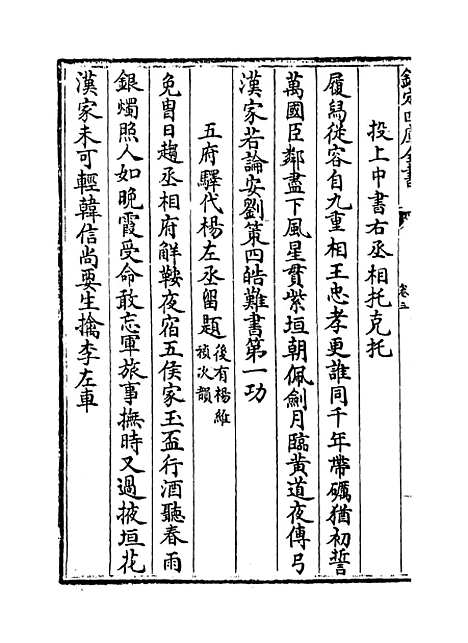 欽定四庫全書
卷三
投上中書右丞相托克托
履舄從容自九重相王忠孝更誰同千年帶礪猶初誓
萬國臣鄰盡下風星貫紫垣朝佩劍月臨黃道夜傳弓
漢家若論安劉策四皓難書第一功
五府驛代楊左丞留題後有楊維禎次韻
免胄日趨丞相府解鞍夜宿五侯家玉盃行酒聽春雨
銀燭照人如晚霞受命敢忘軍旅事撫時又過掖垣花
漢家未可輕韓信尚要生擒李左車